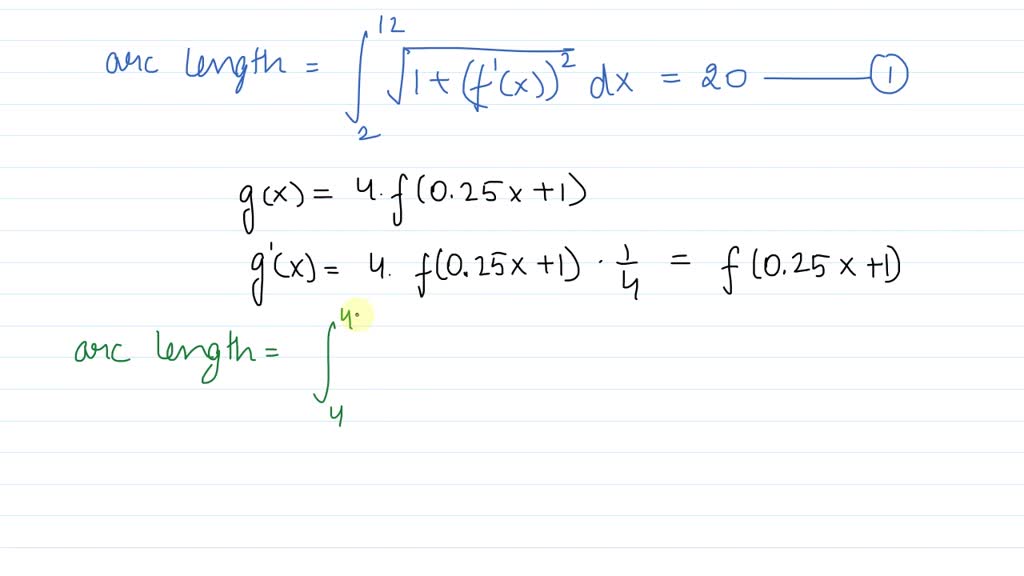 arc length = ∫₂¹² √(1+(f'(x))²) dx = 20 —— ①
g(x) = 4.f(0.25x+1)
g'(x) = 4. f(0.25x+1) · 1/4 = f(0.25x+1)
arc length = ∫₄⁴·